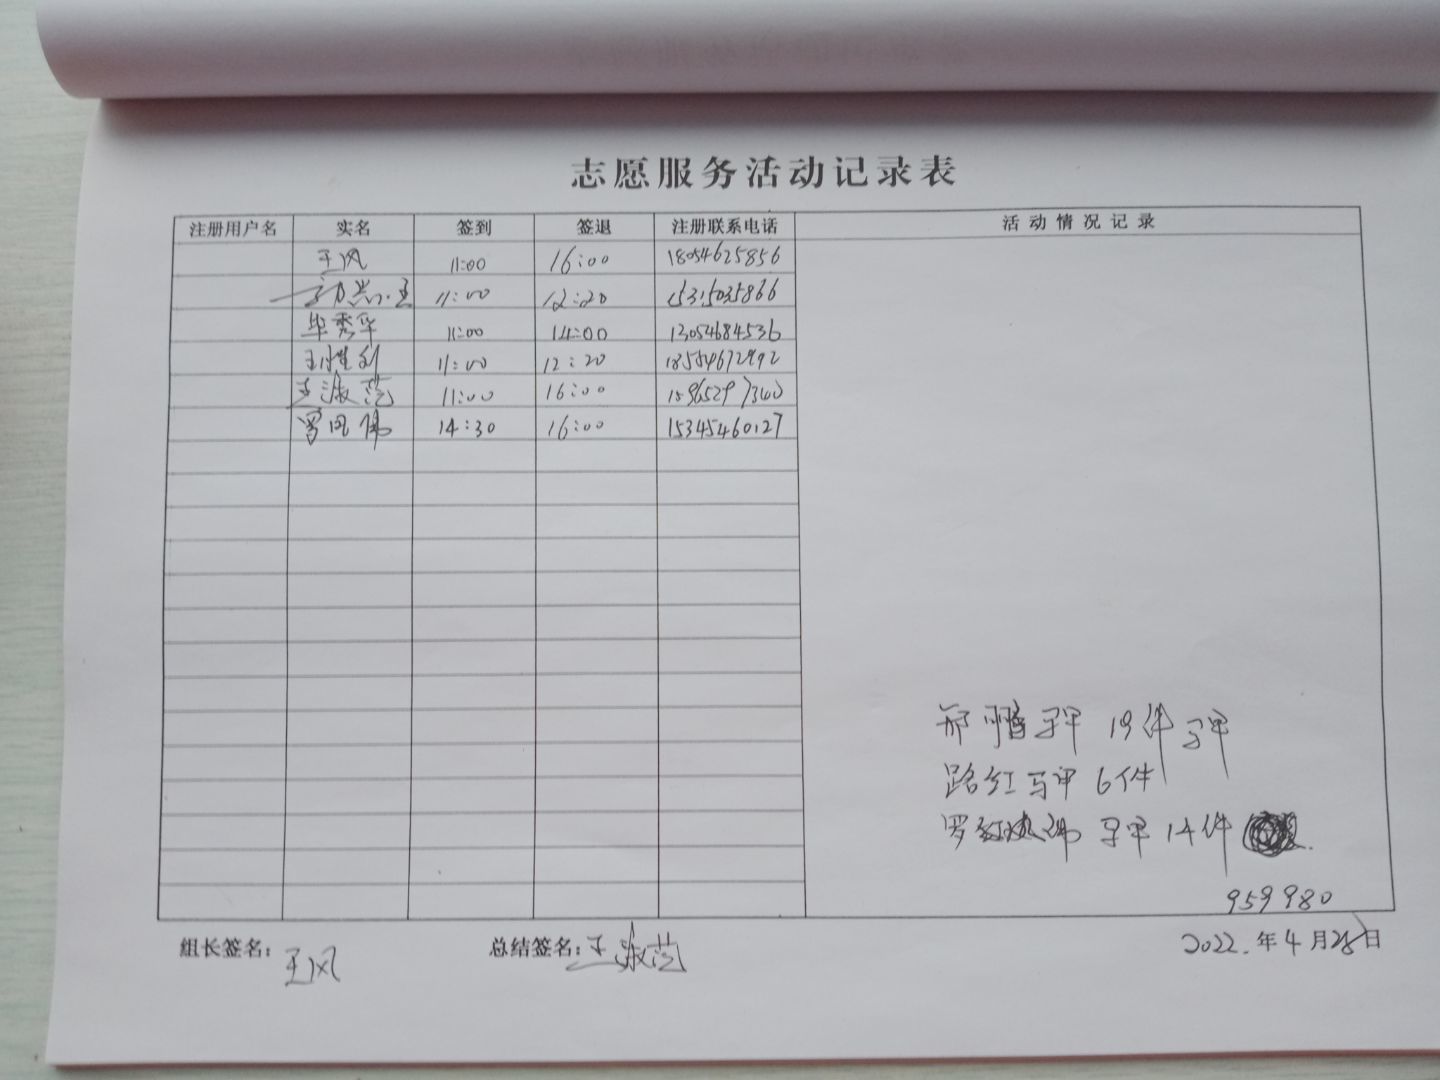 志愿服务活动记录表
注册用户名 实名 签到 签退 注册联系电话 活动情况记录
王风 11:00 16:00 18054625856
11:00 12:20 15315035866
毕秀华 11:00 14:00 13054684536
王胜利 11:00 12:20 18554672992
王淑芝 11:00 16:00 15965297340
罗风伟 14:30 16:00 15345460127
马甲 19件 马甲
路红 马甲 6件
罗 马甲 14件
959980
组长签名: 王风 总结签名: 王淑芝 2022.年4月28日